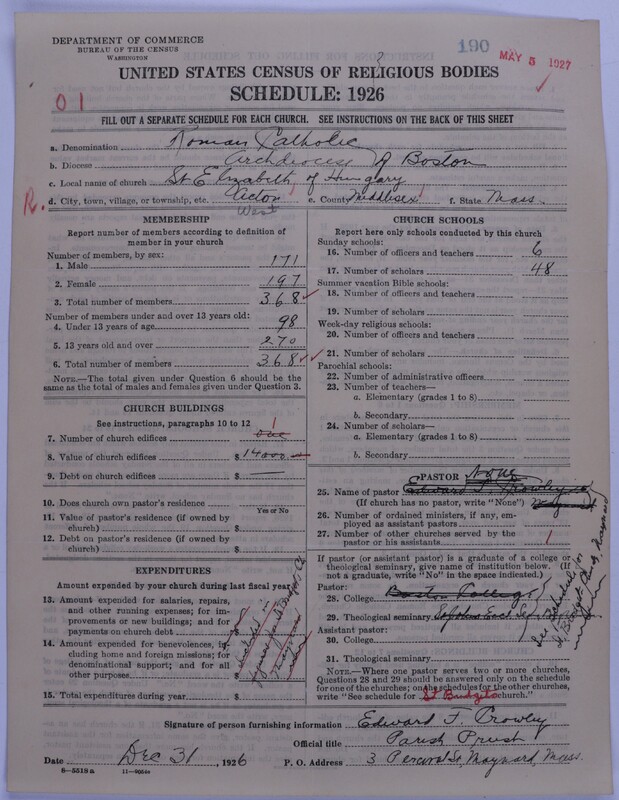 DEPARTMENT OF COMMERCE
BUREAU OF THE CENSUS
WASHINGTON
190
MAY 5 1927
UNITED STATES CENSUS OF RELIGIOUS BODIES
SCHEDULE: 1926
01
FILL OUT A SEPARATE SCHEDULE FOR EACH CHURCH. SEE INSTRUCTIONS ON THE BACK OF THIS SHEET
a. Denomination Roman Catholic
b. Diocese Archdiocese of Boston
c. Local name of church St Elizabeth of Hungary
R. d. City, town, village, or township, etc. Acton e. County Middlesex f. State Mass.
West
MEMBERSHIP
Report number of members according to definition of
member in your church
Number of members, by sex:
1. Male 171
2. Female 197
3. Total number of members 368
Number of members under and over 13 years old:
4. Under 13 years of age 98
5. 13 years old and over 270
6. Total number of members 368
NOTE.—The total given under Question 6 should be the
same as the total of males and females given under Question 3.
CHURCH BUILDINGS
See instructions, paragraphs 10 to 12
7. Number of church edifices one 1
8. Value of church edifices $ 14000
9. Debt on church edifices $ —
10. Does church own pastor's residence
Yes or No
11. Value of pastor's residence (if owned by
church) $
12. Debt on pastor's residence (if owned by
church) $
EXPENDITURES
Amount expended by your church during last fiscal year
13. Amount expended for salaries, repairs,
and other running expenses; for im-
provements or new buildings; and for
payments on church debt $
14. Amount expended for benevolences, in-
cluding home and foreign missions; for
denominational support; and for all
other purposes $
15. Total expenditures during year $
included in
figures for St Bridgets Ch
Maynard
CHURCH SCHOOLS
Report here only schools conducted by this church
Sunday schools:
16. Number of officers and teachers 6
17. Number of scholars 48
Summer vacation Bible schools:
18. Number of officers and teachers
19. Number of scholars
Week-day religious schools:
20. Number of officers and teachers
21. Number of scholars
Parochial schools:
22. Number of administrative officers
23. Number of teachers—
a. Elementary (grades 1 to 8)
b. Secondary
24. Number of scholars—
a. Elementary (grades 1 to 8)
b. Secondary
PASTOR None
25. Name of pastor Edward F Crowley
(If church has no pastor, write "None")
26. Number of ordained ministers, if any, em-
ployed as assistant pastors
27. Number of other churches served by the
pastor or his assistants 1
If pastor (or assistant pastor) is a graduate of a college or
theological seminary, give name of institution below. (If
not a graduate, write "No" in the space indicated.)
Pastor:
28. College Boston College
29. Theological seminary St Johns Eccl Sem
Assistant pastor:
30. College
31. Theological seminary
See Schedule for
St Bridget Church, Maynard
NOTE.—Where one pastor serves two or more churches,
Questions 28 and 29 should be answered only on the schedule
for one of the churches; on the schedules for the other churches,
write "See schedule for St Bridgets church."
Signature of person furnishing information Edward F. Crowley
Official title Parish Priest
Date Dec 31, 1926 P. O. Address 3 Percival St, Maynard, Mass.
6—5518a 11—9054a